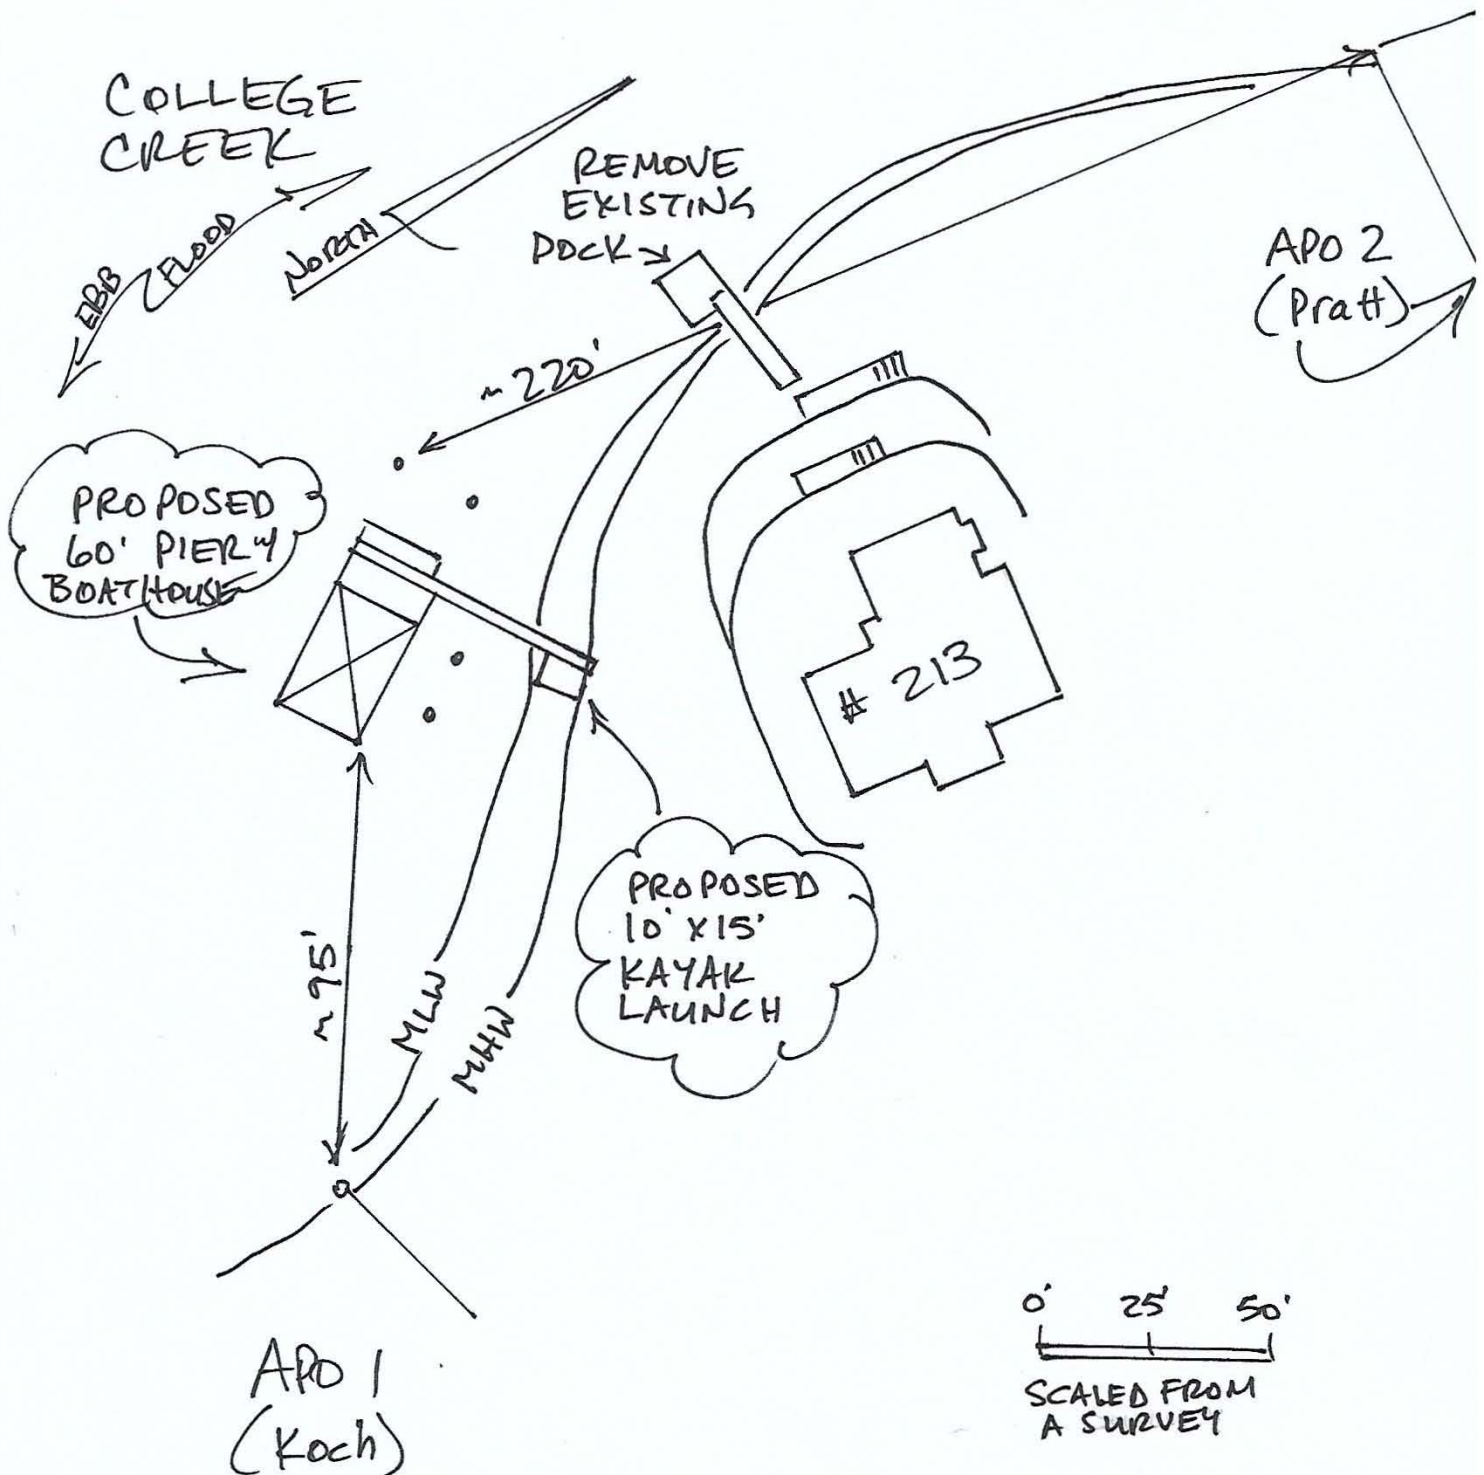 COLLEGE
CREEK
EBB
FLOOD
NORTH
REMOVE
EXISTING
DOCK
~ 220'
APO 2
(Pratt)
PROPOSED
60' PIER w/
BOATHOUSE
# 213
PROPOSED
10' X 15'
KAYAK
LAUNCH
~ 95'
MLW
MHW
APO 1
(Koch)
0' 25' 50'
SCALED FROM
A SURVEY